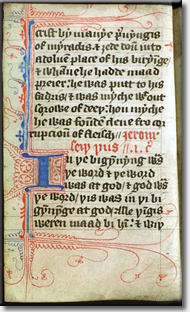 crist bi manye
of myradis & ȝede doun into
a doluen place of his biriynge
& whanne he hadde maad
preier: he was putt to his
fadris/ & was myche wiþout
sorowe of deeþ: hou myche
he was founde clene fro cor
rupcioun of fleisch/
I N ye bigynnyng was
ye word & ye word
was at god/ & god was
ye word/ yis was in ye bi
gynynge at god/ alle yingis
weren maad bi hī: & wiþ